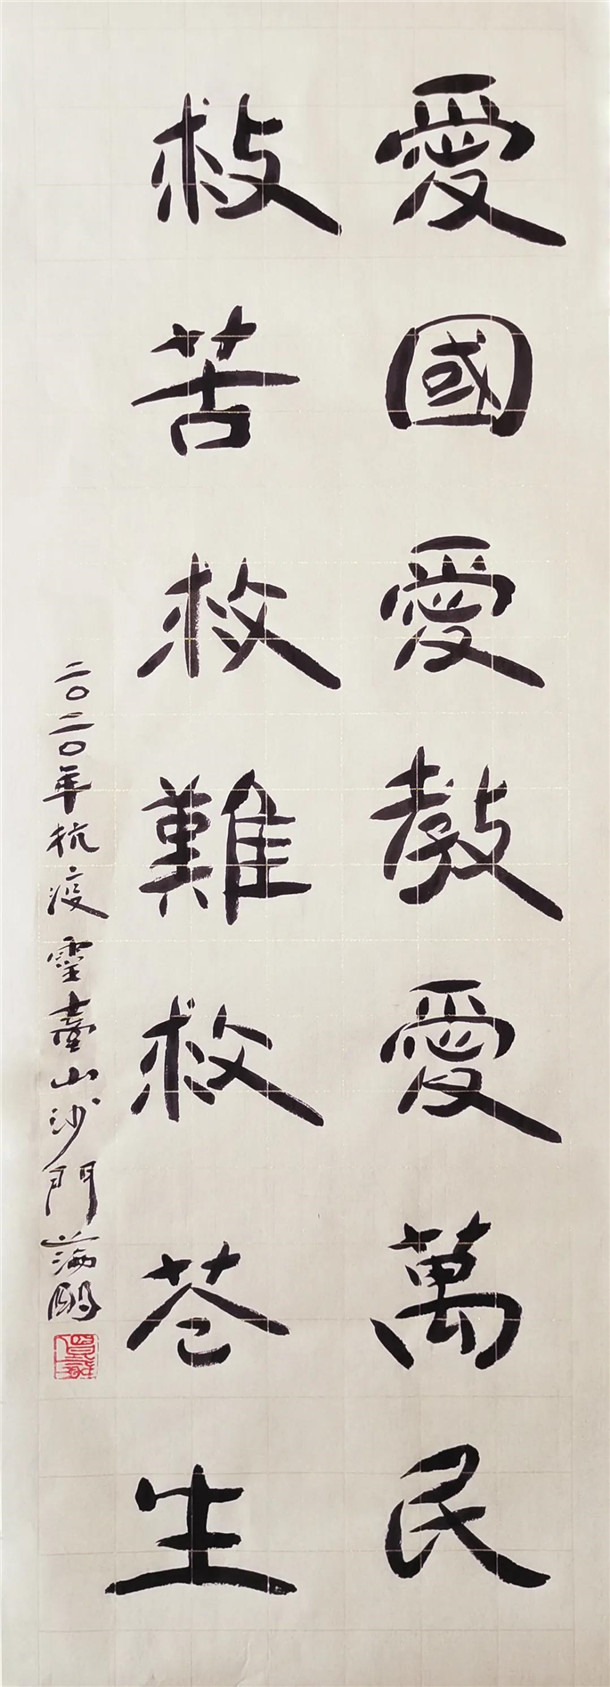 愛國愛教愛萬民
救苦救難救苍生
二〇二〇年抗疫靈臺山沙門